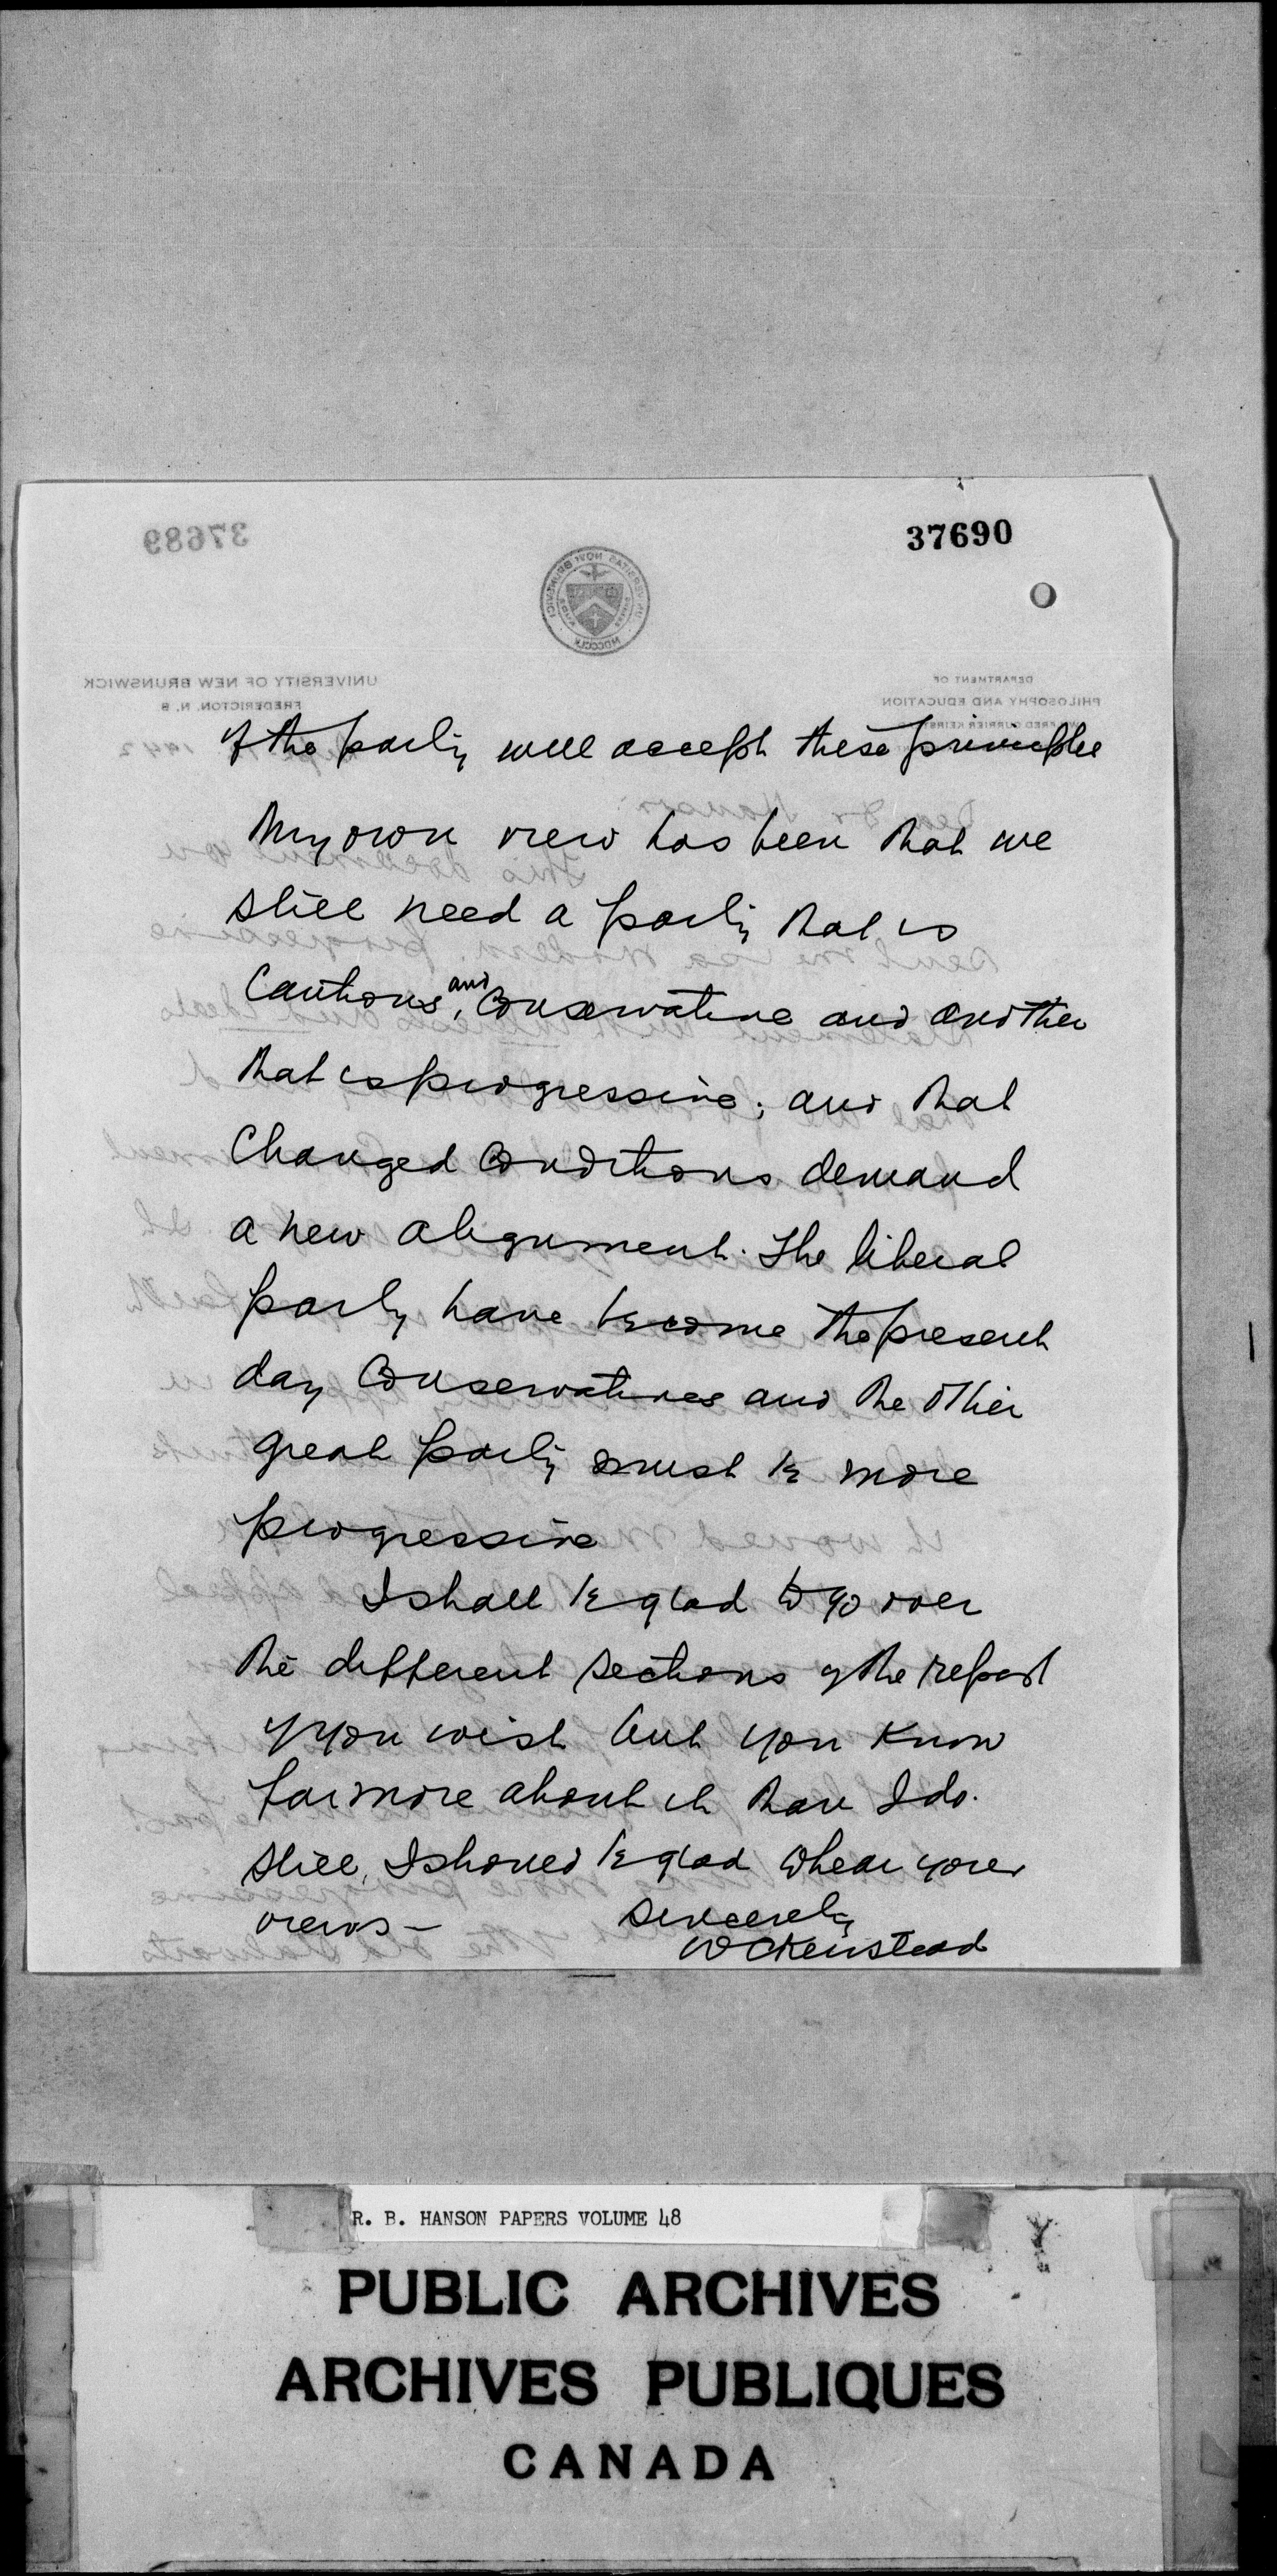 37690
of the party will accept these principles
My own view has been that we
still need a party that is
Cautious, and Conservative and another
that is progressive; and that
Changed Conditions demand
a new alignment. The liberal
party have become the present
day Conservatives and the other
great party must be more
progressive
I shall be glad to go over
the different sections of the report
if you wish but you know
far more about it than I do.
Still, I should be glad to hear your
views —
Sincerely
W C Keirstead
R. B. HANSON PAPERS VOLUME 48
PUBLIC ARCHIVES
ARCHIVES PUBLIQUES
CANADA